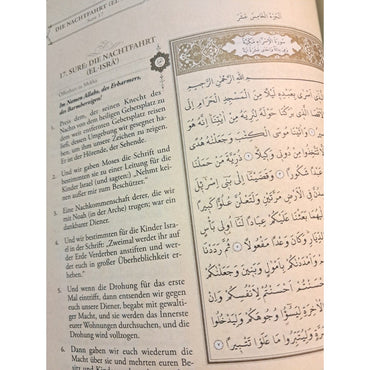 DIE NACHTFAHRT (EL-
17. SURE: DIE NACHTFAHRT
(EL-ISRÂ')
Offenbart in Mekka
Im Namen Allahs, des Erbarmers,
des Barmherzigen!
1. Preis dem, der seinen Knecht des
Nachts von dem heiligen Gebetsplatz zu
dem weit entfernten Gebetsplatz reisen
ließ, dessen Umgebung wir gesegnet ha-
ben, um ihm unsere Zeichen zu zeigen.
Er ist der Hörende, der Sehende.
2. Und wir gaben Moses die Schrift und
bestimmten sie zu einer Leitung für die
Kinder Israel (und sagten) „Nehmt kei-
nen außer mir zum Beschützer."
3. Eine Nachkommenschaft derer, die wir
mit Noah (in der Arche) trugen; war ein
dankbarer Diener.
4. Und wir bestimmten für die Kinder Isra-
el in der Schrift: „Zweimal werdet ihr auf
der Erde Verderben anstiften und wer-
det euch in großer Überheblichkeit er-
heben."
5. Und wenn die Drohung für das erste
Mal eintrifft, dann entsenden wir gegen
euch unsere Diener, begabt mit gewalti-
ger Macht, und sie werden das Innerste
eurer Wohnungen durchsuchen, und die
Drohung wird vollzogen.
6. Dann gaben wir euch wiederum die
Macht über sie und halfen euch mit
الجزء الخامس عشر
سورة الإسراء مكية
بسم الله الرحمن الرحيم
الذي أسرى بعبده ليلا من المسجد الحرام إلى
الذي باركنا حوله لنريه من آياتنا إنه
وآتينا موسى الكتاب وجعلناه هدى
تتخذوا من دوني وكيلا ٢ ذرية من حملنا
عبدا شكورا ٣ وقضينا إلى بني إسرائيل
الأرض مرتين ولتعلن علوا كبيرا
أولاهما بعثنا عليكم عبادا لنا أولي بأس
الديار وكان وعدا مفعولا ٥ ثم رددنا
وأمددناكم بأموال وبنين وجعلناكم
أحسنتم أحسنتم لأنفسكم وإن
الآخرة ليسوءوا وجوهكم وليدخلوا
مرة وليتبروا ما علوا تتبيرا ٧